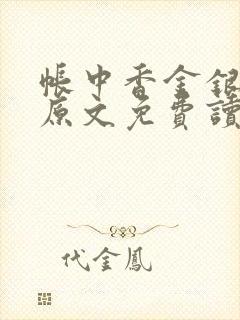 帳中香金銀
原文免費讀
代金鳳